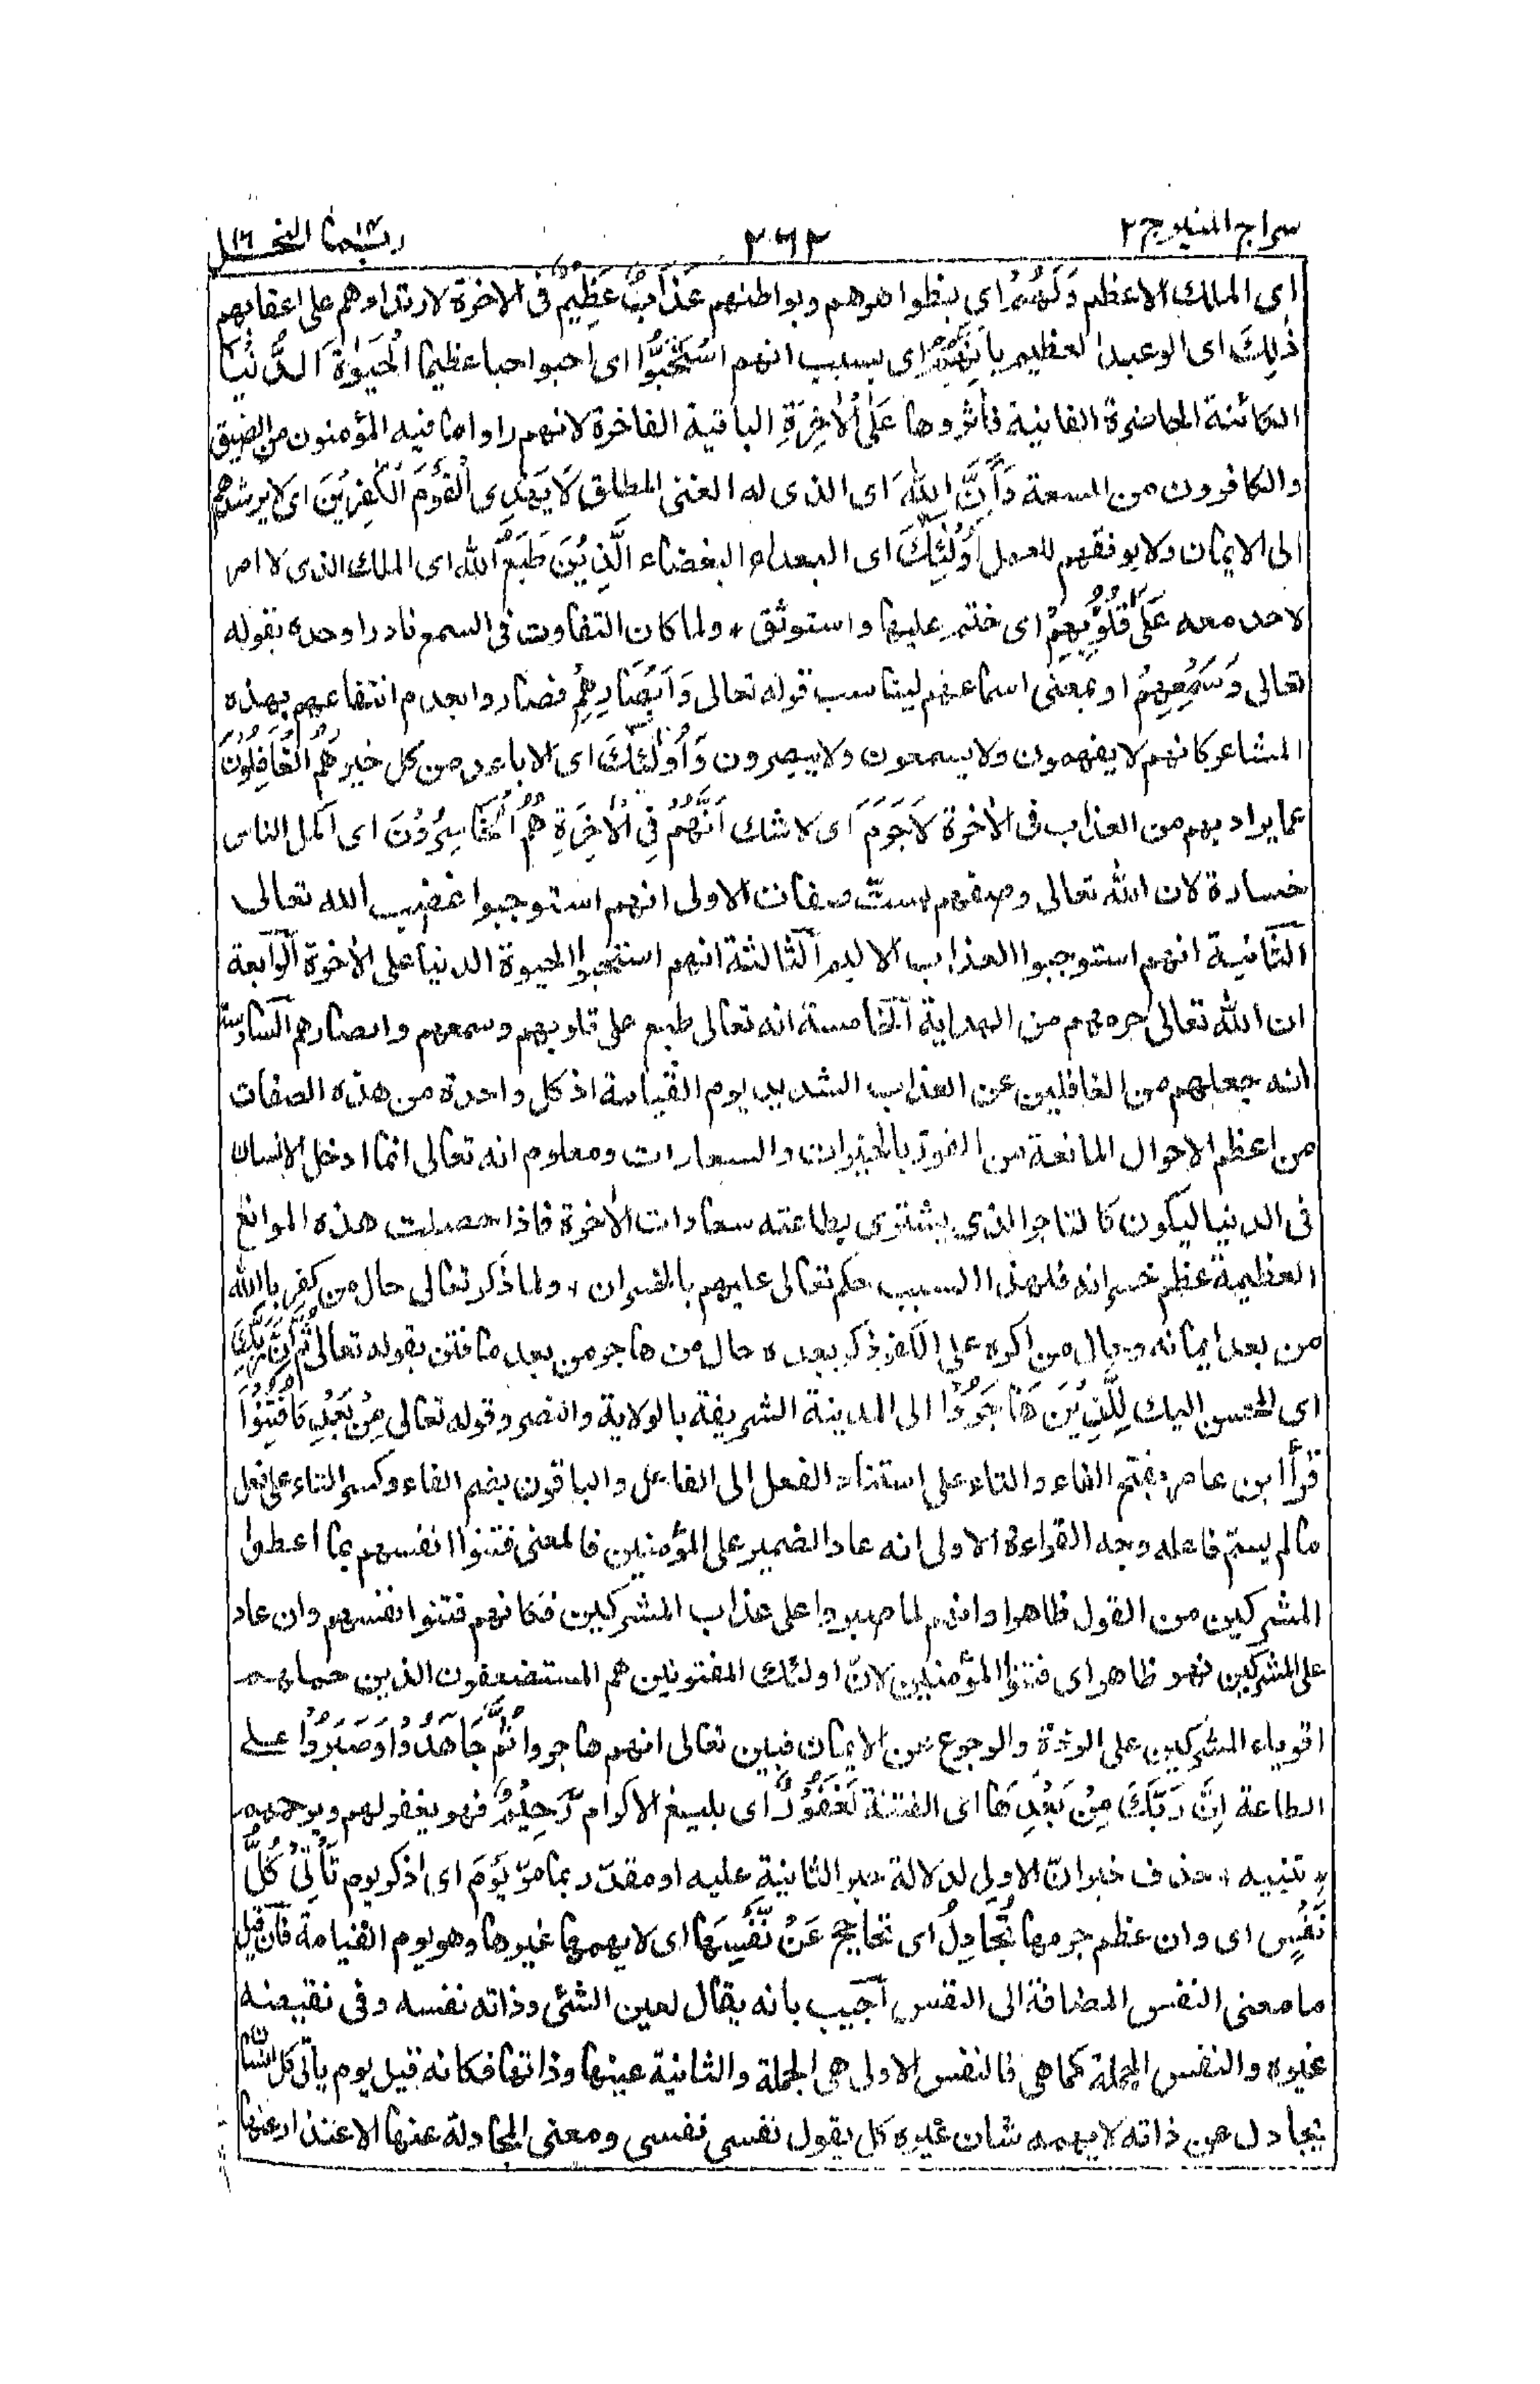 سراج المنير ج٢
٢٦٢
ربما١٤ النحل١٦
اى الملك الاعظم وَلَهُمْ اى بظواهرهم وبواطنهم عَذَابٌ عَظِيْمٌ فى الاخرة لارتدادهم على اعقابهم
ذٰلِكَ اى الوعيد العظيم بِاَنَّهُمُ اى بسبب انهم اسْتَحَبُّوا اى احبوا حبا عظيما الْحَيٰوةَ الدُّنْيَا
الكائنة الحاضرة الفانية فأثروها عَلَى الْاٰخِرَةِ الباقية الفاخرة لانهم راوا ما فيه المؤمنون من الضيق
والكافرون من السعة وَاَنَّ اللّٰهَ اى الذى له الغنى المطلق لَا يَهْدِى الْقَوْمَ الْكٰفِرِيْنَ اى لا يرشدهم
الى الايمان ولا يوفقهم للعمل اُولٰٓئِكَ اى البعداء البغضاء الَّذِيْنَ طَبَعَ اللّٰه اى الملك الذى لا امر
لاحد معه عَلٰى قُلُوْبِهِمْ اى ختم عليها واستوثق ٭ ولما كان التفاوت فى السمع نادرا وحده بقوله
تعالى وَسَمْعِهِمْ او بمعنى اسماعهم ليناسب قوله تعالى وَاَبْصَارِهِمْ فصاروا بعدم انتفاعهم بهذه
المشاعر كانهم لا يفهمون ولا يسمعون ولا يبصرون وَاُولٰٓئِكَ اى الاباعد من كل خير هُمُ الْغَافِلُوْنَ
عما يراد بهم من العذاب فى الأخرة لَاجَرَمَ اى لا شك اَنَّهُمْ فِى الْاٰخِرَةِ هُمُ الْخَاسِرُوْنَ اى اكمل الناس
خسارة لان اللّٰه تعالى وصفهم بستّ صفات الاولى انهم استوجبوا غضب الله تعالى
الثّانية انهم استوجبوا العذاب الاليم الثّالثة انهم استحبوا الحيوة الدنيا على الأخرة الرّابعة
ان اللّٰه تعالى حرمهم من الهداية الخامسة انه تعالى طبع على قلوبهم وسمعهم وابصارهم السّادسة
انه جعلهم من الغافلين عن العذاب الشديد يوم القيامة اذ كل واحدة من هذه الصفات
من اعظم الاحوال المانعة من الفوز بالخيرات والسعادات ومعلوم انه تعالى انما ادخل الانسان
فى الدنيا ليكون كالتاجر الذى يشترى بطاعته سعادات الأخرة فاذا حصلت هذه الموانع
العظيمة عظم خسرانه فلهذا السبب حكم تعالى عليهم بالخسران ٭ ولما ذكر تعالى حال من كفر باللّٰه
من بعد ايمانه وحال من اكره على الكفر ذكر بعده حال من هاجر من بعد ما فتن بقوله تعالى ثُمَّ اِنَّ رَبَّكَ
اى المحسن اليك لِلَّذِيْنَ هَاجَرُوْا الى المدينة الشريفة بالولاية والنصر وقوله تعالى مِنْۢ بَعْدِ مَا فُتِنُوْا
قرأ ابن عامر بفتح الفاء والتاء على استناد الفعل الى الفاعل والباقون بضم الفاء وكسر التاء على فعل
ما لم يسمّ فاعله وجه القراءة الاولى انه عاد الضمير على المؤمنين فالمعنى فتنوا انفسهم بما اعطوا
المشركين من القول ظاهرا وانهم لما صبروا على عذاب المشركين فكانهم فتنوا انفسهم وان عاد
على المشركين فهو ظاهر اى فتنوا المؤمنين لانّ اولئك المفتونين هم المستضعفون الذين حملهم
اقوياء المشركين على الردّة والرجوع عن الايمان فبين تعالى انهم هاجروا ثُمَّ جَاهَدُوْا وَصَبَرُوْا على
الطاعة اِنَّ رَبَّكَ مِنْۢ بَعْدِهَا اى الفتنة لَغَفُوْرٌ اى بليغ الاكرام رَّحِيْمٌ فهو يغفر لهم ويرحمهم
٭ تنبيه ٭ حذف خبر انّ الاولى لدلالة خبر الثانية عليه او مقدّر بما مرّ يَوْمَ اى اذكر يوم تَاْتِىْ كُلُّ
نَفْسٍ اى وان عظم جرمها تُجَادِلُ اى تحاجج عَنْ نَّفْسِهَا اى لا يهمها غيرها وهو يوم القيامة فان قيل
ما معنى النفس المضافة الى النفس اجيب بانه يقال لعين الشئ وذاته نفسه وفى نقيضه
غيره والنفس الجملة كما هى فالنفس الاولى هى الجملة والثانية عينها وذاتها فكانه قيل يوم ياتى كل انسان
يجادل عن ذاته لا يهمه شان غيره كل يقول نفسى نفسى ومعنى المجادلة عنها الاعتذار عنها